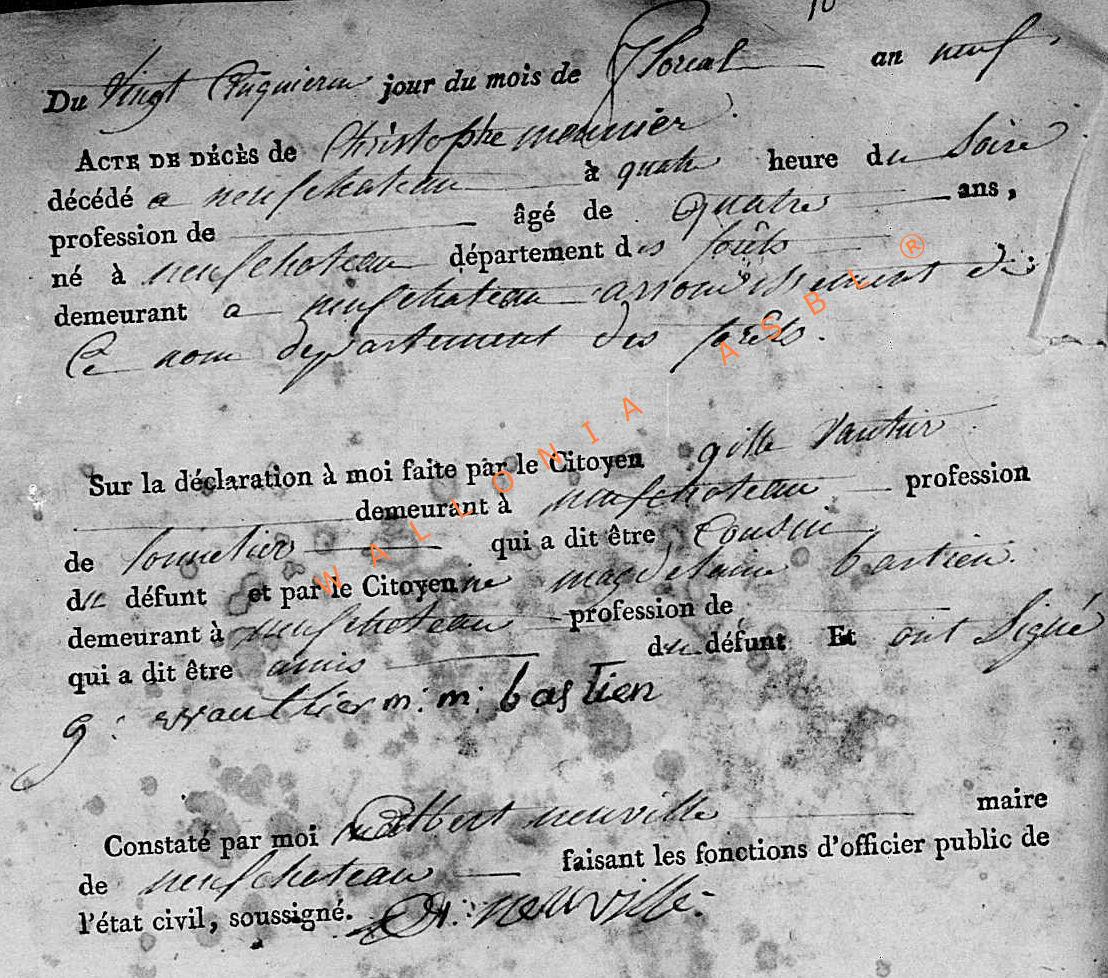 Du Vingt Cinquieme jour du mois de floreal an neuf
ACTE DE DÉCÈS de Christophe meunier
décédé a neufchateau à quatre heure du Soire
profession de âgé de quatre ans,
né à neufchateau département des forêts
demeurant a neufchateau arrondissement de
Ce nom departement des forêts.
Sur la déclaration à moi faite par le Citoyen gille Vautier
demeurant à neufchateau profession
de qui a dit être Cousin
du défunt et par le Citoyenne magdelaine bastien.
demeurant à neufchateau profession de
qui a dit être amis du défunt Et ont Signé
g: wauthier m: m: bastien
Constaté par moi albert neuville maire
de neufchateau faisant les fonctions d'officier public de
l'état civil, soussigné. A: neuville
WALLONIA ASBL ®